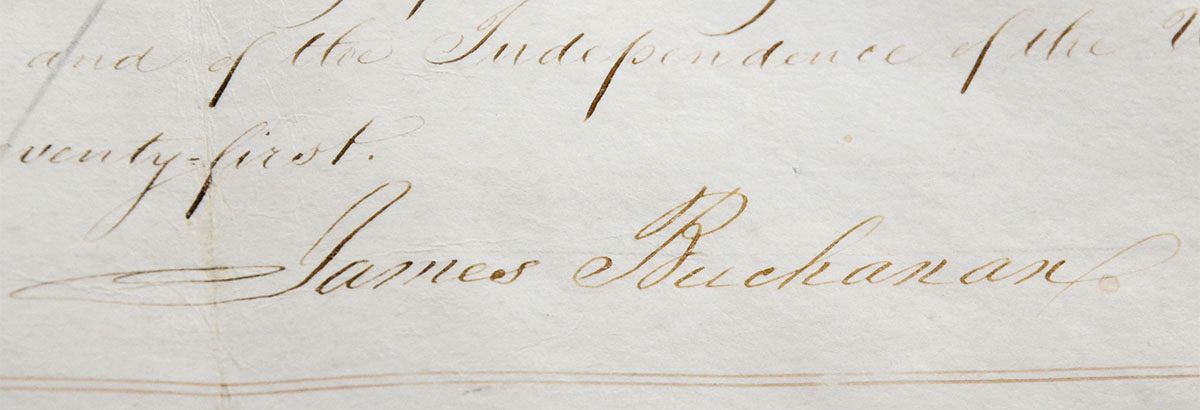 and of the Independence of the
venty-first.
James Buchanan.